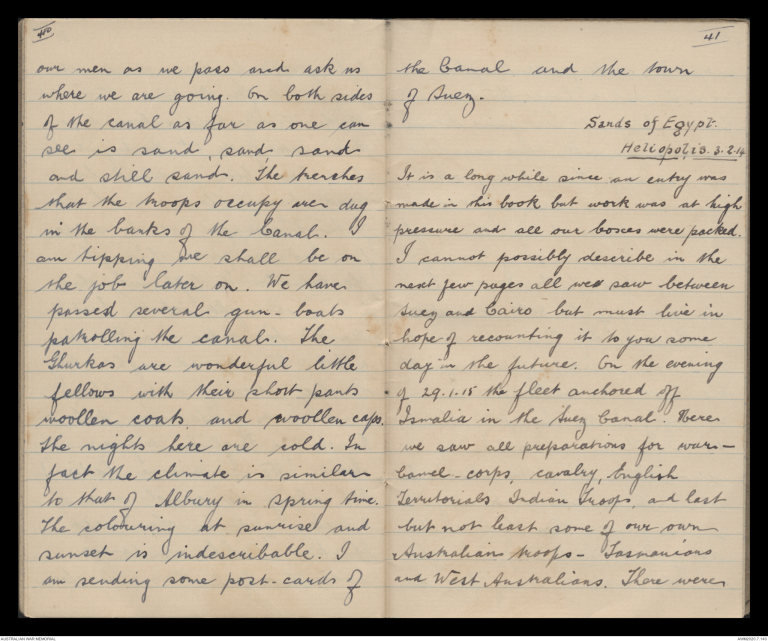 40
our men as we pass and ask us
where we are going. On both sides
of the canal as far as one can
see is sand, sand, sand
and still sand. The trenches
that the troops occupy are dug
in the banks of the Canal. I
am tipping we shall be on
the job later on. We have
passed several gun-boats
patrolling the canal. The
Ghurkas are wonderful little
fellows with their short pants
woollen coats and woollen caps.
The nights here are cold. In
fact the climate is similar
to that of Albury in spring time.
The colouring at sunrise and
sunset is indescribable. I
am sending some post-cards of
41
the Canal and the town
of Suez.
Sands of Egypt.
Heliopolis. 3.2.14
It is a long while since an entry was
made in this book but work was at high
pressure and all our boxes were packed.
I cannot possibly describe in the
next few pages all we saw between
Suez and Cairo but must live in
hope of recounting it to you some
day in the future. On the evening
of 29.1.15 the fleet anchored off
Ismalia in the Suez Canal. Here
we saw all preparations for war -
Camel-corps, cavalry, English
Territorials Indian Troops, and last
but not least some of our own
Australian troops - Tasmanians
and West Australians. There were
AUSTRALIAN WAR MEMORIAL